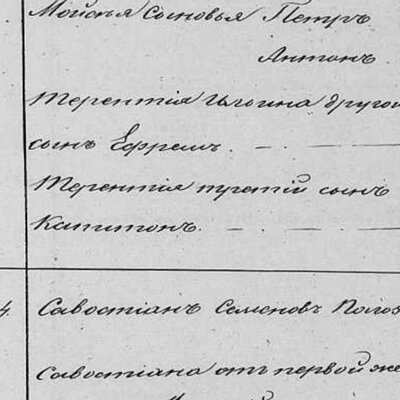 Моисея сыновья Петръ
Антонъ
Терентія Ильина другой
сынъ Ефремъ.
Терентія третій сынъ
Капитонъ.
4. Савостіанъ Семеновъ
Савостіана отъ первой же